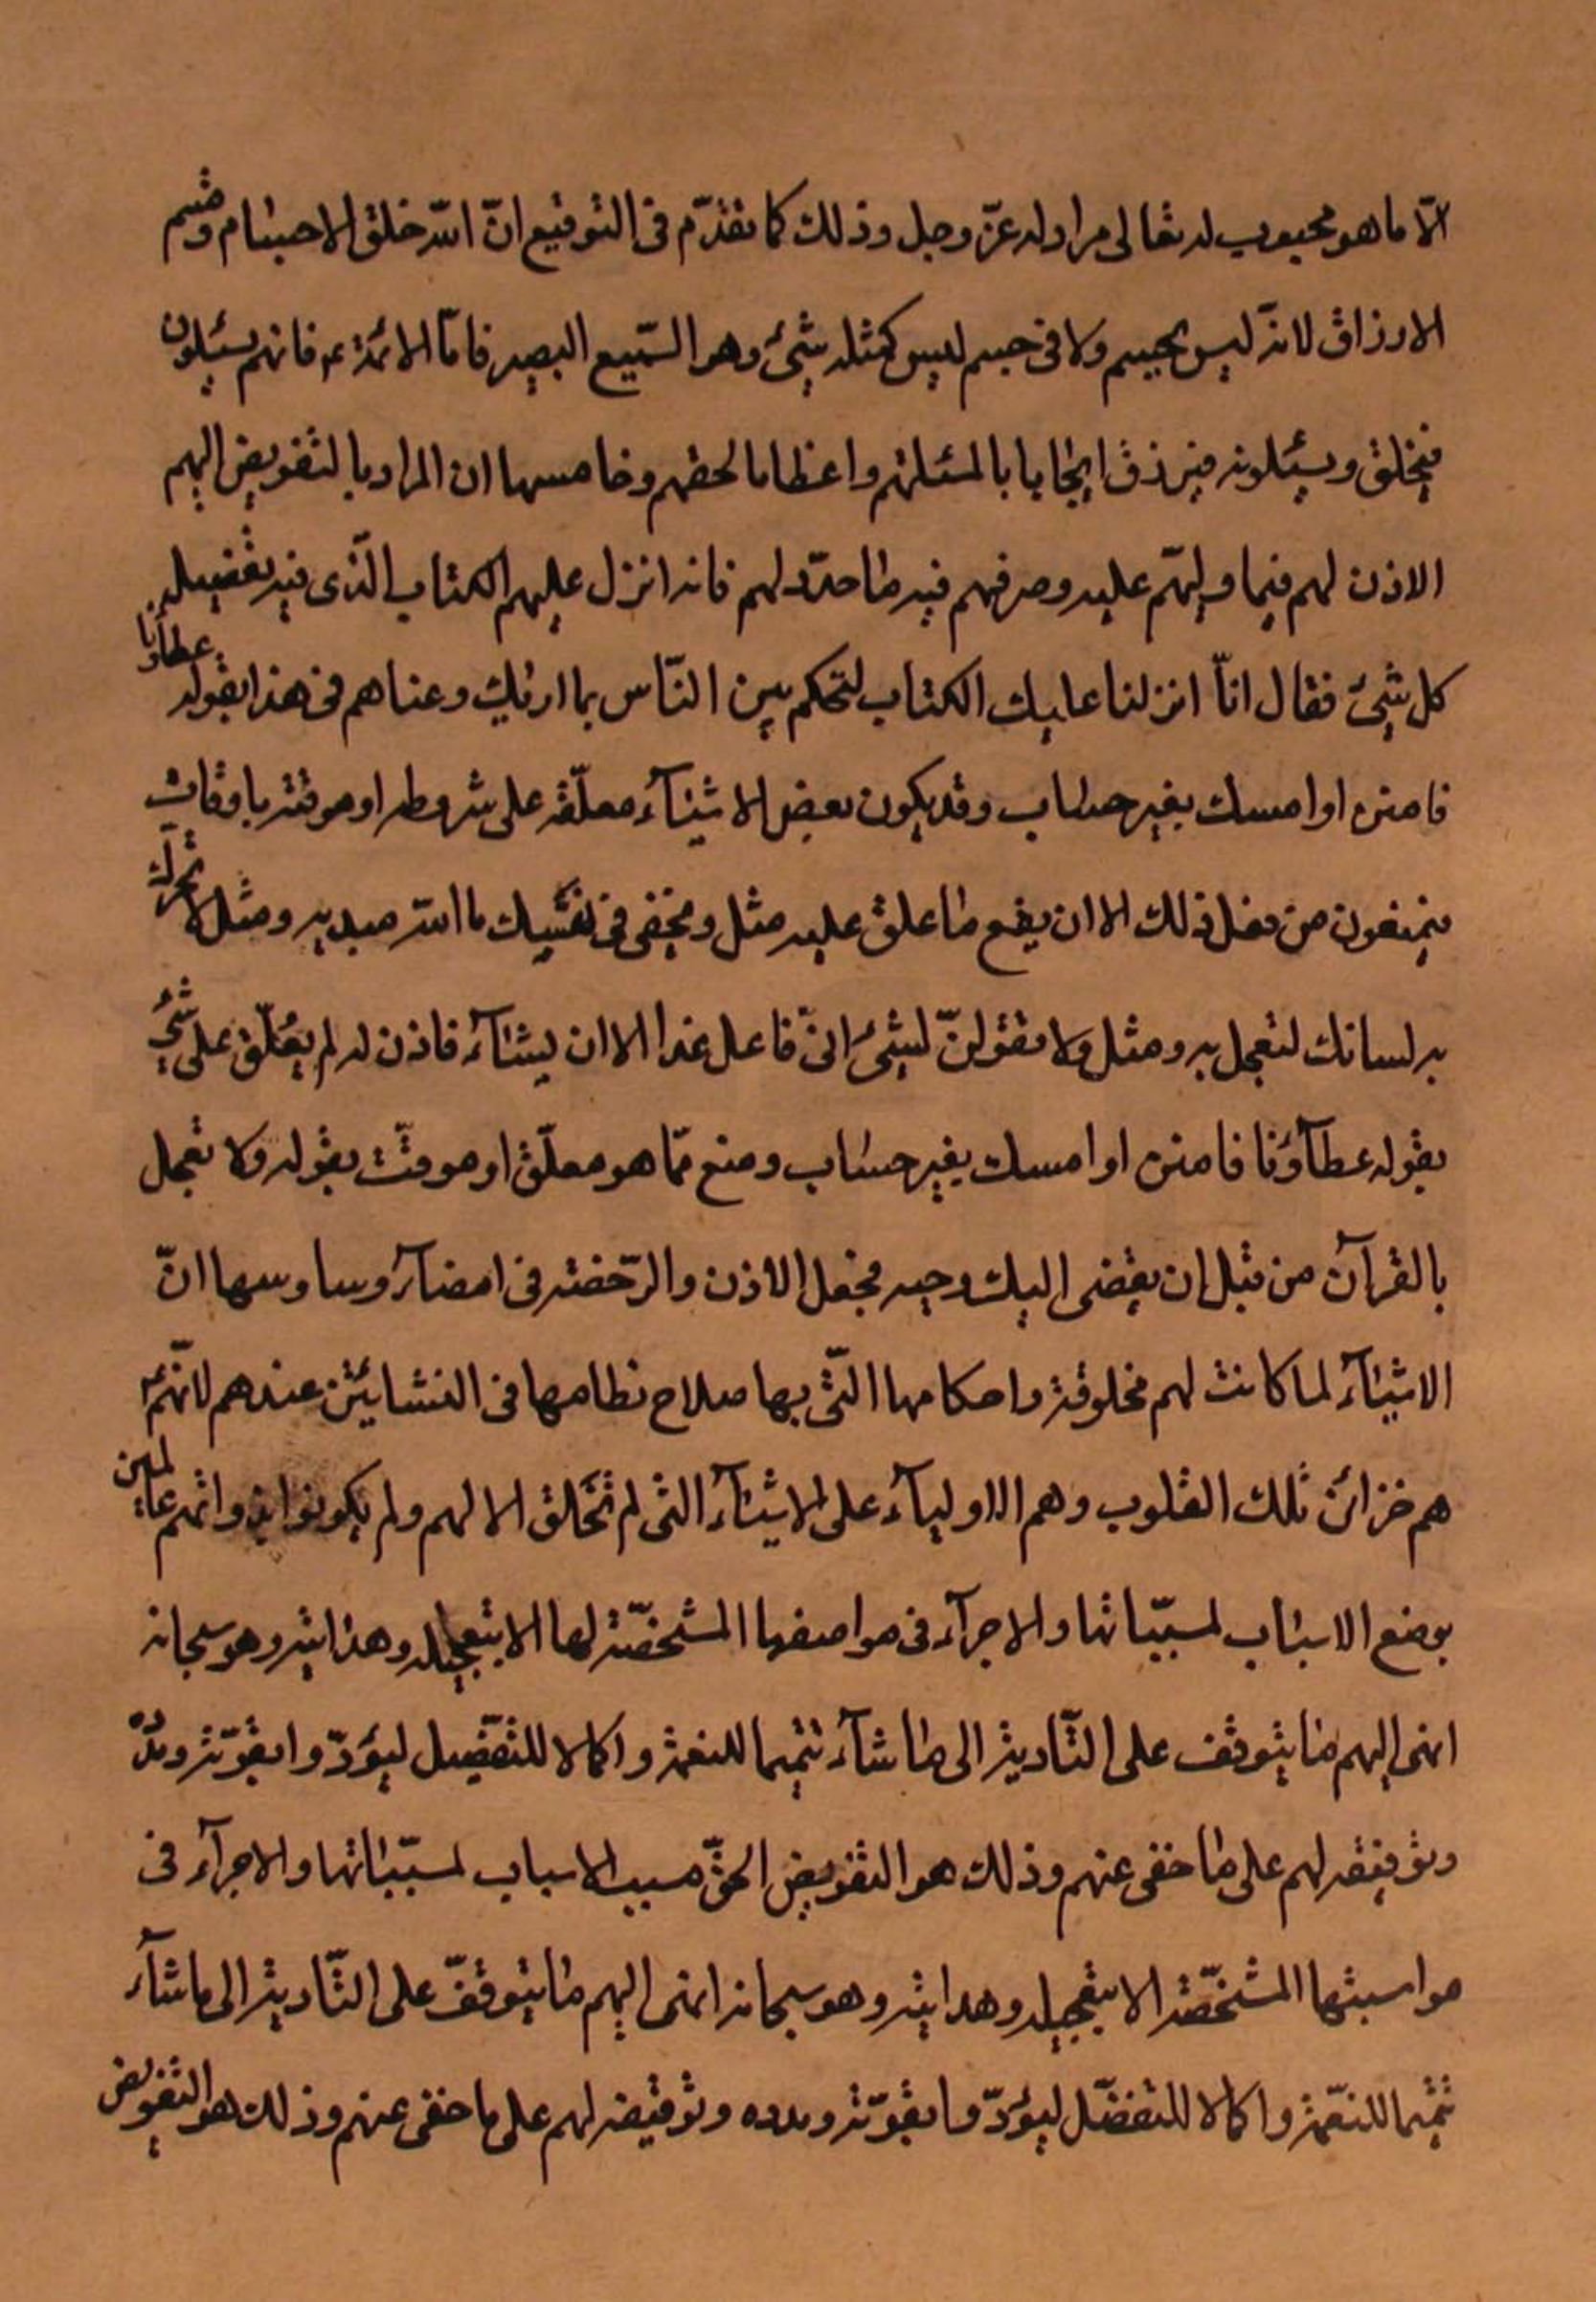 الّا ما هو محبوب له تعالى مراد له عزّ وجل وذلك كما تقدّم فى التوقيع انّ الله خلق الاجسام وقسم
الارزاق لانه ليس بجسم ولا فى جسم ليس كمثله شئ وهو السّميع البصير فامّا الائمّة ع فانهم يسئلون
فيخلق ويسئلونه فيرزق ايجابا بالمسئلتهم واعظاما لحقهم وخامسها ان المراد بالتفويض اليهم
الاذن لهم فيما ولّيهم عليه وصرفهم فيه ما حدّد لهم فانه انزل عليهم الكتاب الّذى فيه تفصيل
كل شئ فقال انّا انزلنا عليك الكتاب لتحكم بين النّاس بما اريك وعناهم فى هذا بقوله عطاؤنا
فامنن او امسك بغير حساب وقد يكون بعض الاشيآء معلّقة على شروط او موقتة باوقات
يمنعون من فعل ذلك الا ان يقع ما علق عليه مثل وتخفى فى نفسك ما الله مبديه ومثل لا تحرّك
به لسانك لتعجل به ومثل ولا تقولنّ لشئ انّى فاعل غدا الا ان يشآء فاذن له لم يعلّق على شئ
بقوله عطآؤنا فامنن او امسك بغير حساب ومنع مّما هو معلّق او موقّت بقوله ولا تعجل
بالقرآن من قبل ان يقضى اليك وحيه فجعل الاذن والرّخصة فى امضآء وسادسها انّ
الاشيآء لما كانت لهم مخلوقة واحكامها الّتى بها صلاح نظامها فى النشايتين عندهم لانّهم
هم خزائن تلك القلوب وهم الاوليآء على الاشيآء التى لم تخلق الا لهم ولم يكونوا وانهم عالمين
بوضع الاسباب لمسبّباتها والاجرآء فى مواضعها المشخّصة لها الا بتعجيله وهدايته وهو سبحانه
انهى اليهم ما يتوقف على التّادية الى ما شآء تتميما للنعمة واكمالا للتفضيل ليؤدّوا بقوّته ومدده
وتوفيقه لهم على ما خفى عنهم وذلك هو التفويض الحقّ مسبب الاسباب لمسبّباتها والاجرآء فى
مواسبتها المشخّصة الا بتعجيله وهدايته وهو سبحانه انهى اليهم ما يتوقفّ على التّادية الى ما شآء
تتميما للنعّمة واكمالا للتفضّل ليؤدّوا بقوّته ومدده وتوفيقه لهم على ما خفى عنهم وذلك هو التفويض